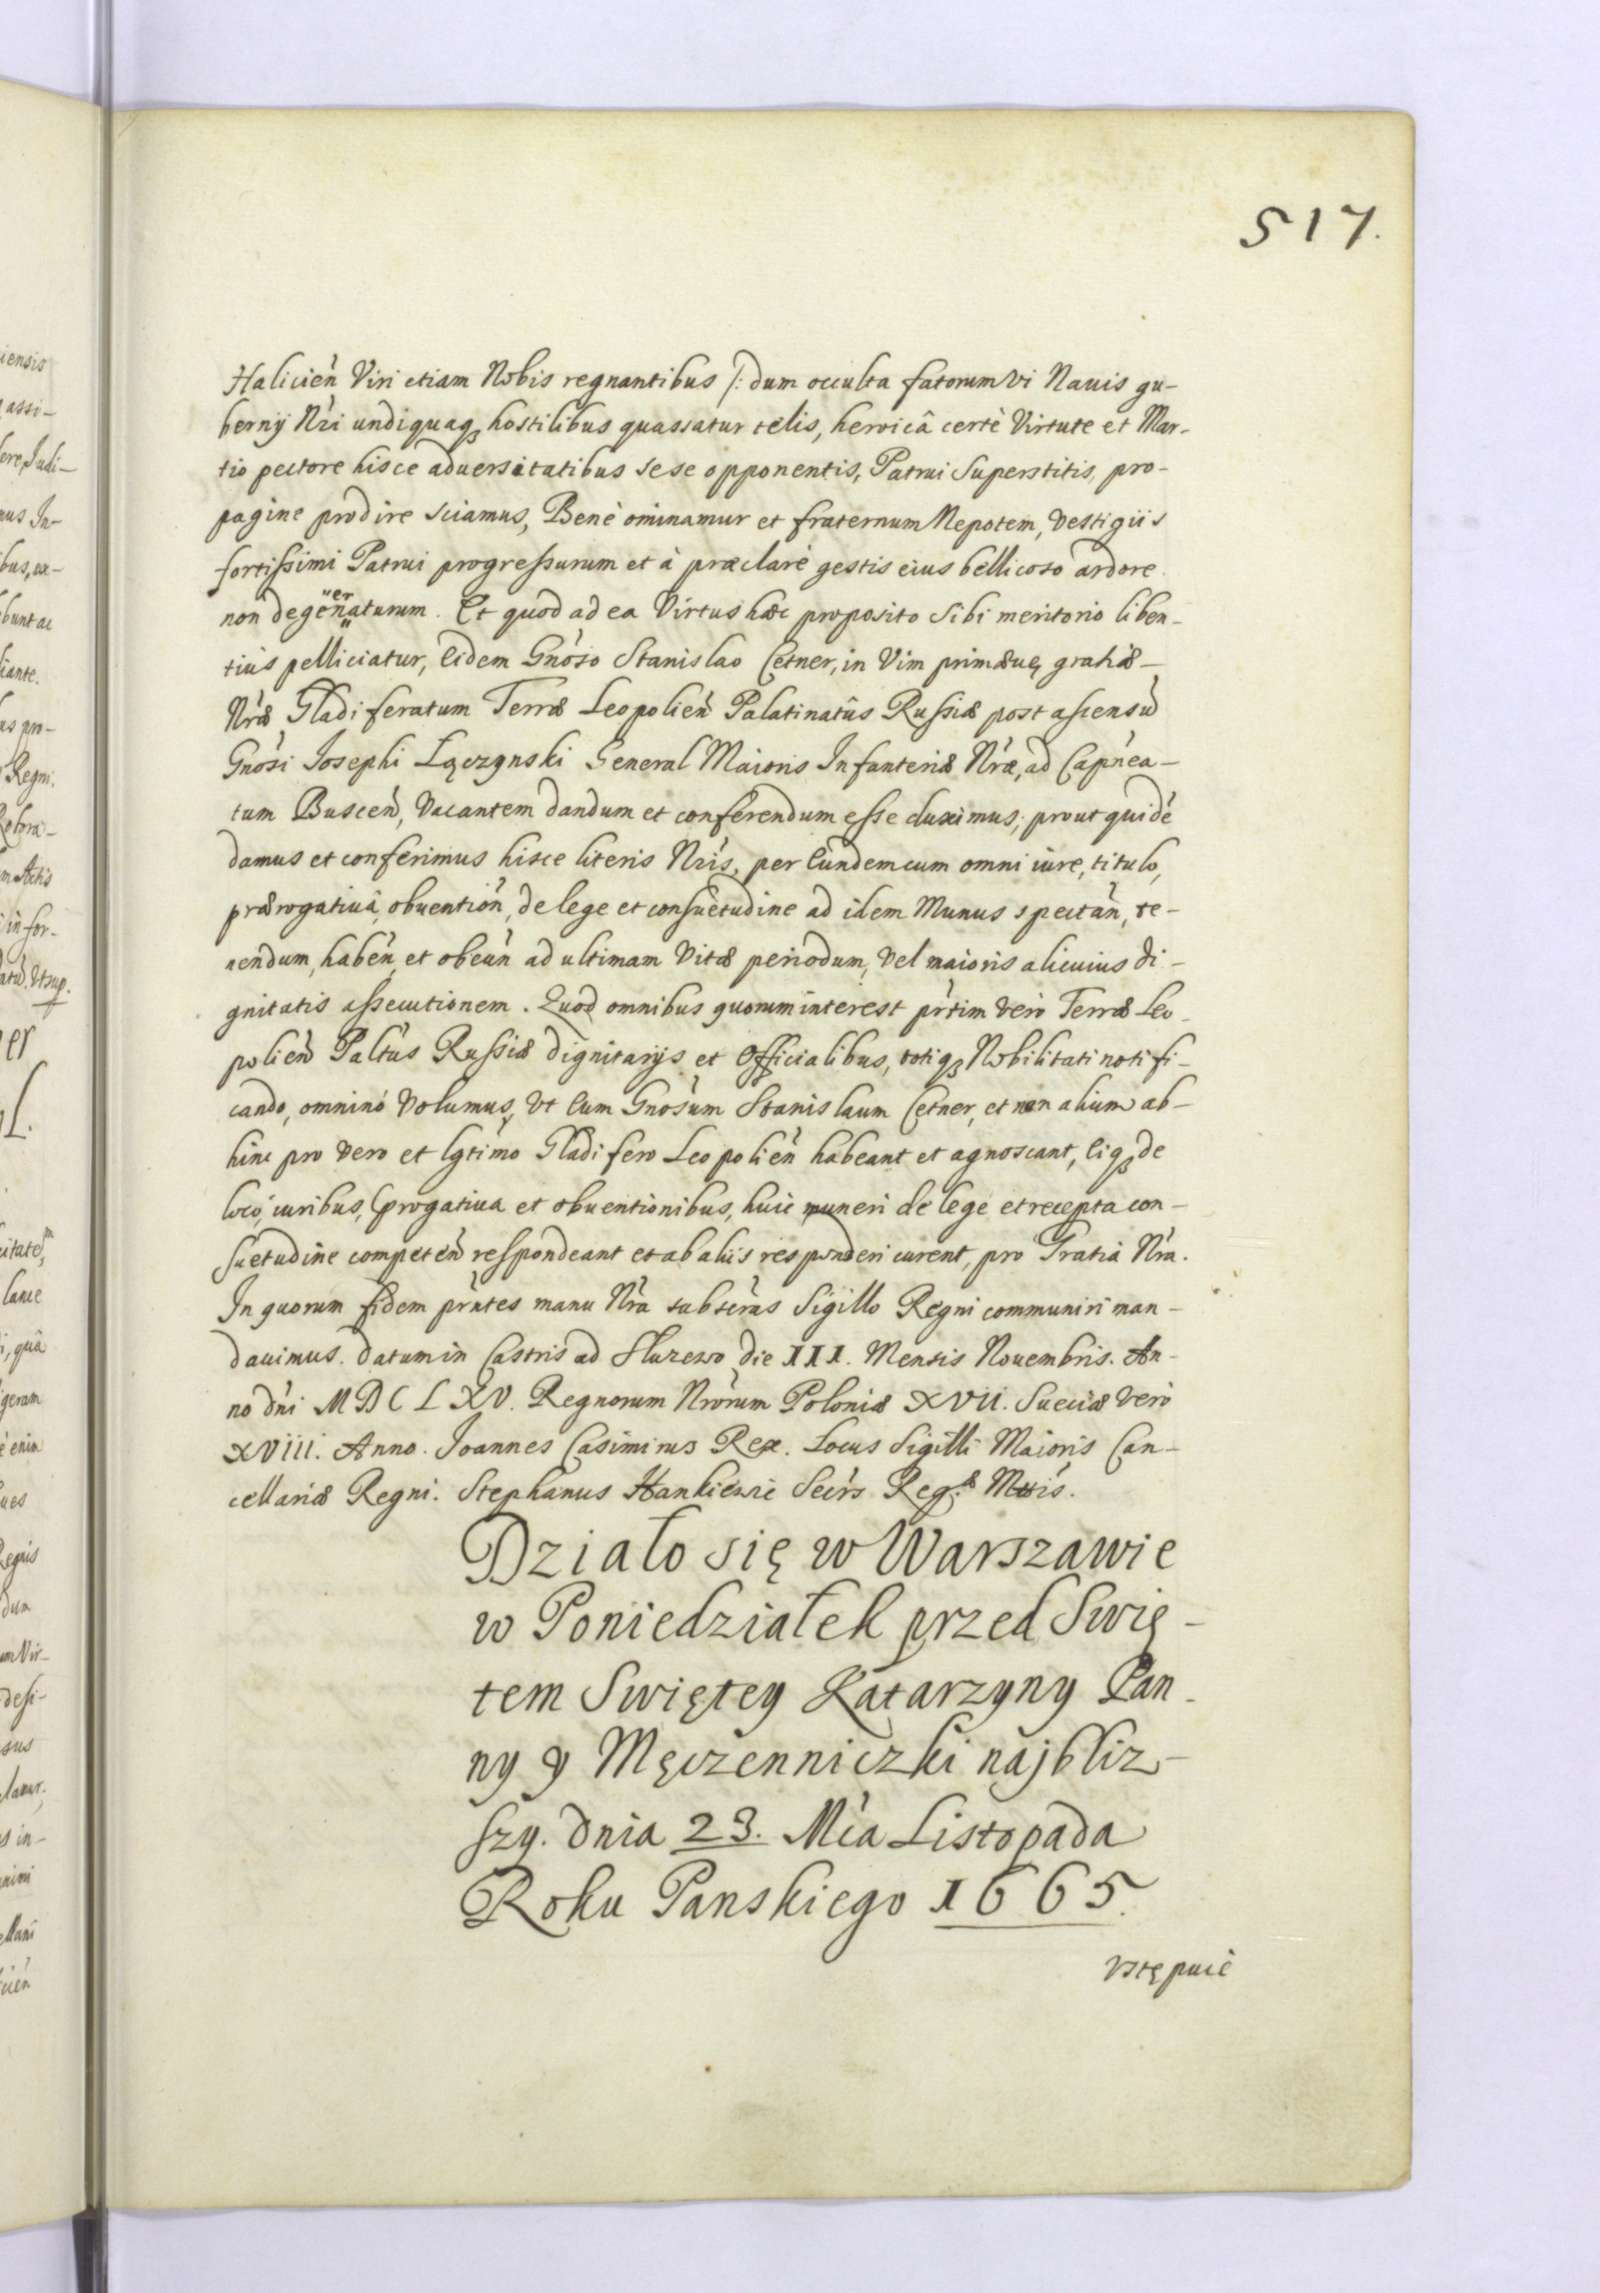 517.
Halicień Viri etiam Nobis regnantibus /: dum occulta fatorum vi Nauis gu-
bernÿ Nri undiquaqꝫ hostilibus quassatur telis, heroicâ certè Virtute et Mar-
tio pectore hisce aduersitatibus sese opponentis, Patrui Superstitis, pro-
pagine prodire sciamus, Benè ominamur et fraternum Nepotem, vestigiis
fortissimi Patrui progressurum et à præclarè gestis eius bellicoso ardore
non degenaturum. Et quod ad ea Virtus hæc proposito sibi meritorio liben-
er
tiùs pelliciatur, Eidem Gnoso Stanislao Cetner, in Vim primæuę gratiæ
Nræ Gladiferatum Terræ Leopolień Palatinatûs Russiæ post ascensũ
Gnosi Josephi Lączynski General Maioris Infanteriæ Nræ, ad Capnea-
tum Busceń, Vacantem dandum et conferendum esse duximus, prout quidé
damus et conferimus hisce literis Nris, per Eundem cum omni iure, titulo,
prærogatiuâ, obuentioń, de lege et consuetudine ad idem Munus spectań, te-
nendum, habeń, et obeuń ad ultimam Vitæ periodum, Vel maioris alicuius di-
gnitatis assecutionem. Quod omnibus quorum interest prtim verò Terræ Leo-
polień Paltus Russiæ dignitarÿs et Officialibus, totiqꝫ Nobilitati notifi-
cando, omninò Volumus, Vt Eum Gnosum Stanislaum Cetner, et non alium ab-
hinc pro Vero et lgtimo Gladifero Leopolień habeant et agnoscant, Eiqꝫ de
loco, iuribus, progatiua et obuentionibus, huic muneri de lege et recepta con-
suetudine competeń respondeant et ab aliis responderi curent, pro Gratia Nra.
In quorum fidem prntes manu Nra subscras Sigillo Regni communiri man-
dauimus. Datum in Castris ad Sluzewo die III. Mensis Nouembris. An-
no dni MDCLXV. Regnorum Nrorum Poloniæ XVII. Sueciæ verò
XVIII. Anno. Joannes Casimirus Rex. Locus Sigilli Maioris Can-
cellariæ Regni. Stephanus Hankiewic Secrs Reg.æ Mttis.
Działo się w Warszawie
w Poniedziałek przed Swię-
tem Swiętey Katarzyny Pan-
ny y Męczenniczki najbliz-
szy. dnia 23. Mca Listopada
Roku Panskiego 1665.
Vstępuie